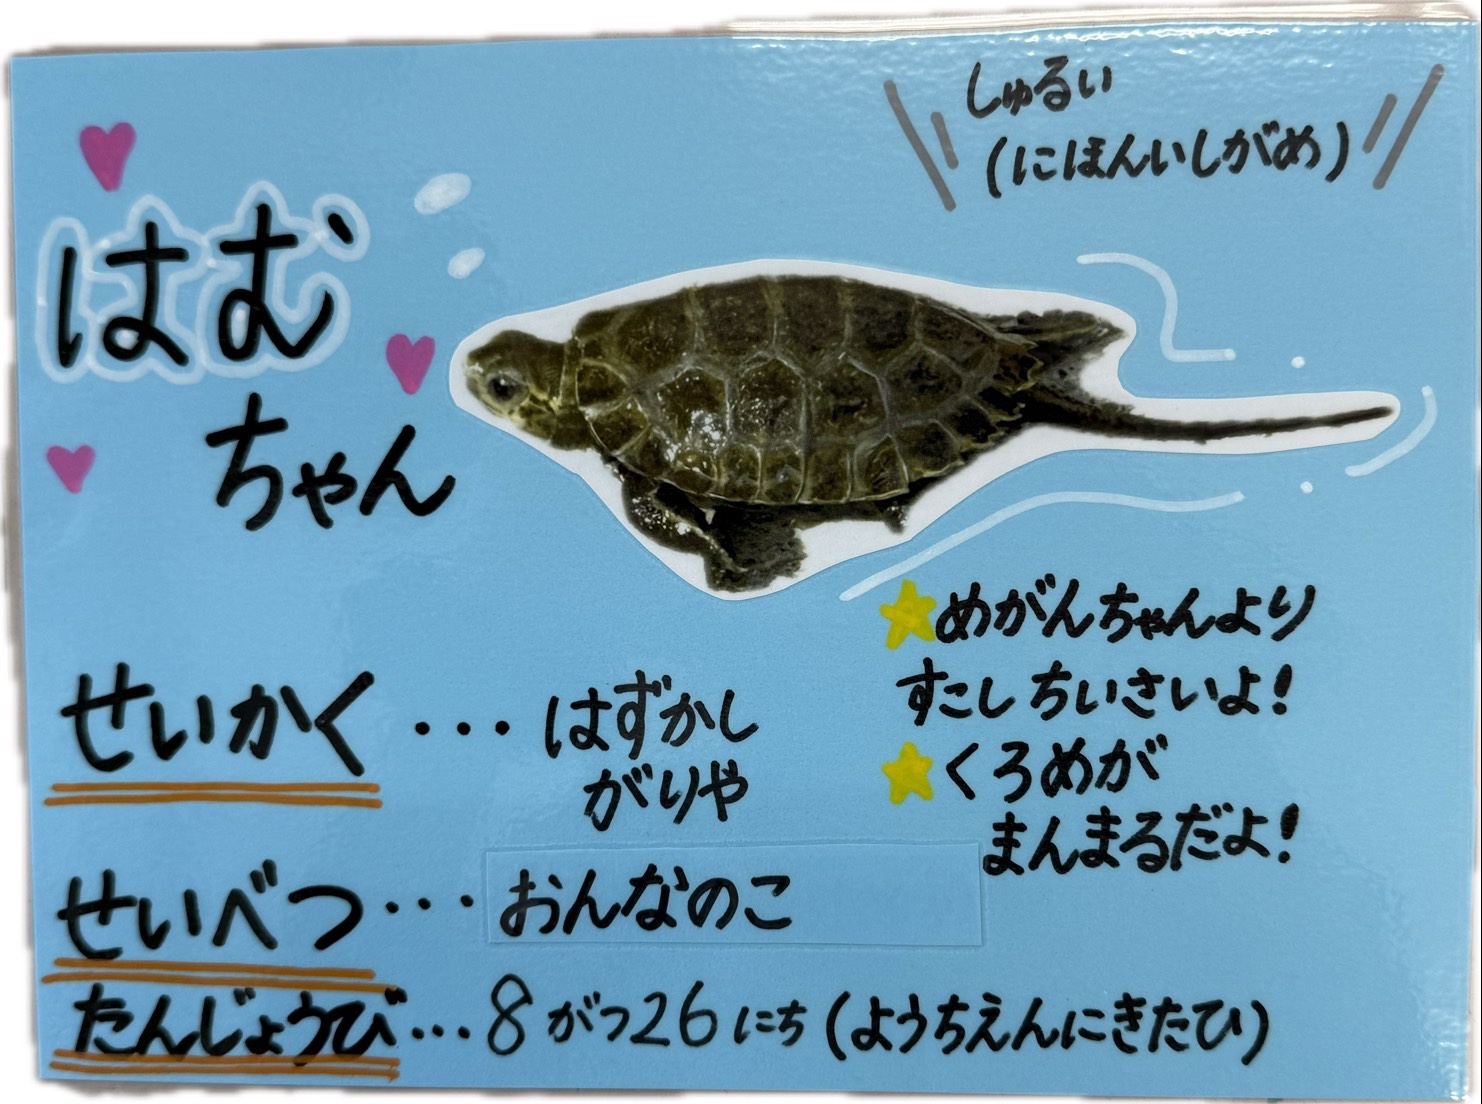 しゅるい
(にほんいしがめ)
はむ
ちゃん
★めがんちゃんより
すこしちいさいよ!
★くろめが
まんまるだよ!
せいかく・・・はずかし
がりや
せいべつ・・・おんなのこ
たんじょうび・・・8がつ26にち(ようちえんにきたひ)